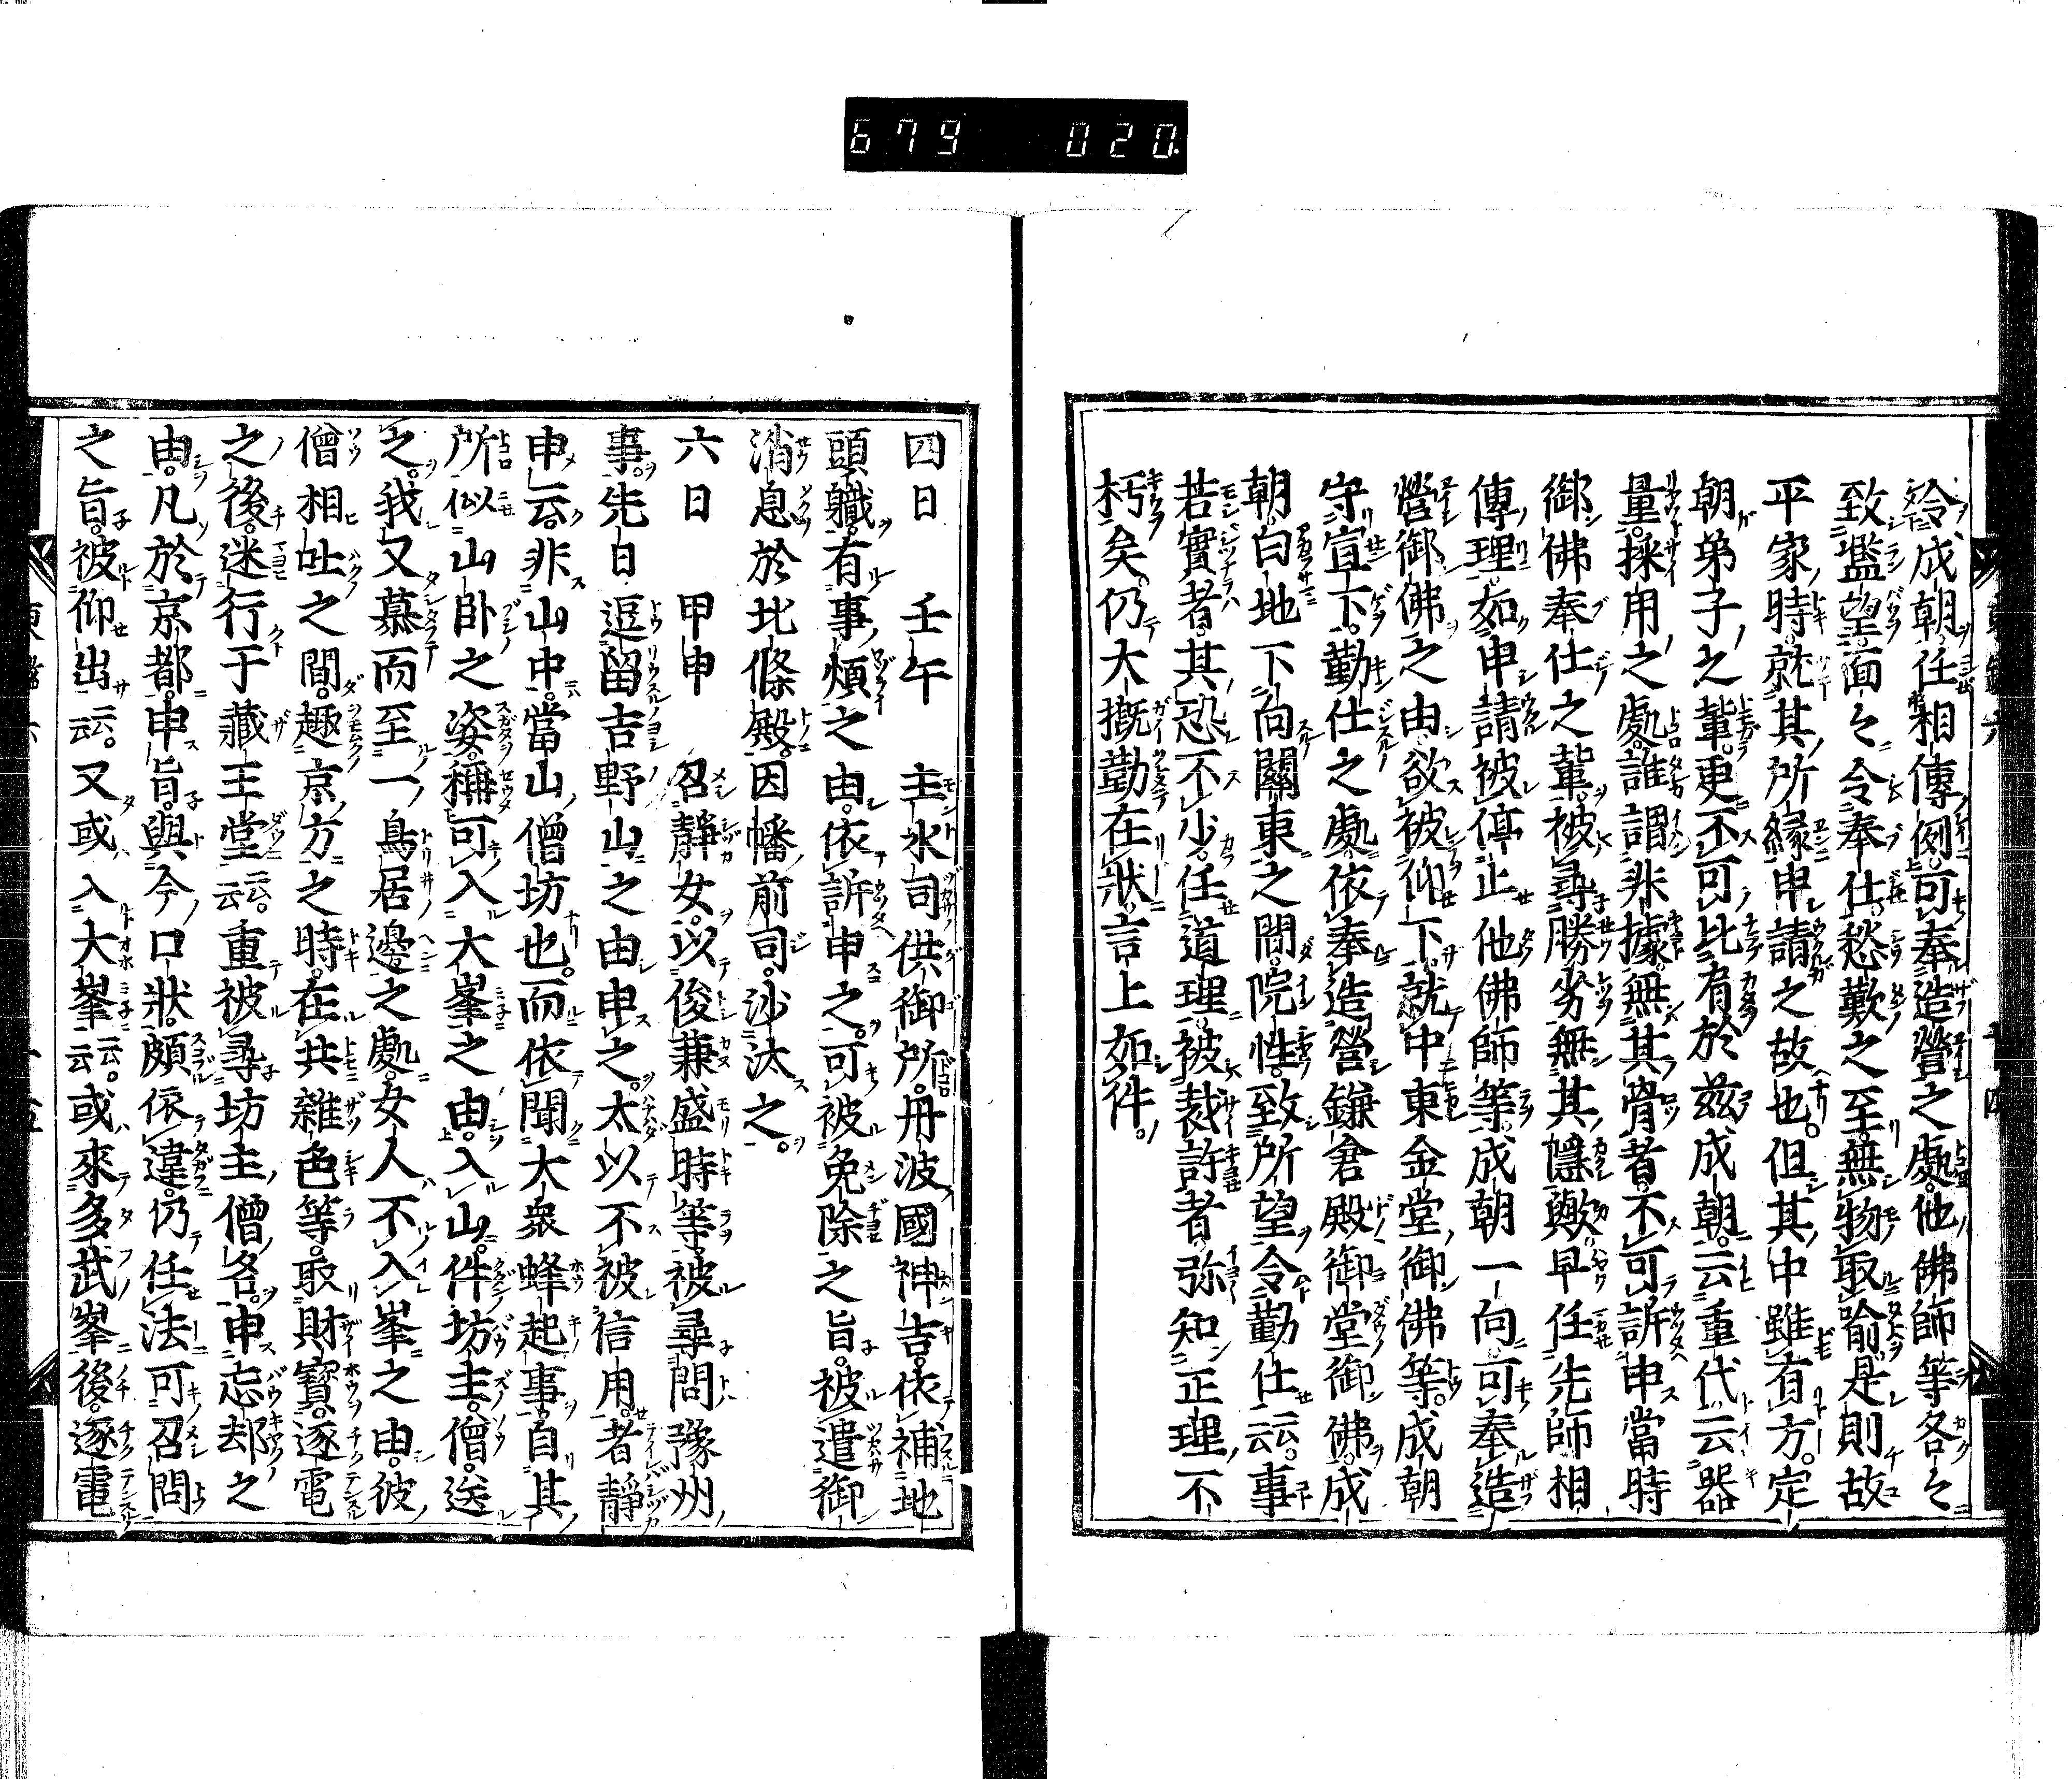 679 020
令成朝任相傳例可奉造營之處他佛師等各々
致監望面々令奉仕愁歎之至無物取喩是則故
平家時就其所緣申請之故也但其中雖有方定
朝弟子之輩更不可比肩於兹成朝云重代云器
量採用之處誰謂非據無其骨者不可訴申當時
御佛奉仕之輩被尋勝劣無其隱歟早任先師相
傳理如申請被停止他佛師等成朝一向可奉造
營御佛之由欲被仰下就中東金堂御佛等成朝
守宣下勤仕之處依奉造營鎌倉殿御堂御佛成
朝白地下向關東之間院性致所望令勤仕云云事
若實者其恐不少任道理被裁許者弥知正理不
朽矣仍大概勒在狀言上如件
四日　壬午　主水司供御所丹波國神吉依補地
頭職有事煩之由依訴申之可被免除之旨被遣御
消息於北條殿因幡前司沙汰之
六日　甲申　召靜女以俊兼盛時等被尋問豫州
事先日逗留吉野山之由申之太以不被信用者靜
申云非山中當山僧坊也而依聞大衆蜂起事自其
所似山臥之姿稱可入大峯之由入山件坊主僧送
之我又慕而至一鳥居邊之處女人不入峯之由彼
僧相叱之間趣京方之時在共雜色等取財寶逐電
之後迷行于藏王堂云云重被尋坊主僧名申忘却之
由凡於京都申旨與今口狀頗依違仍任法可召問
之旨被仰出云云又或入大峯云云或來多武峯後逐電